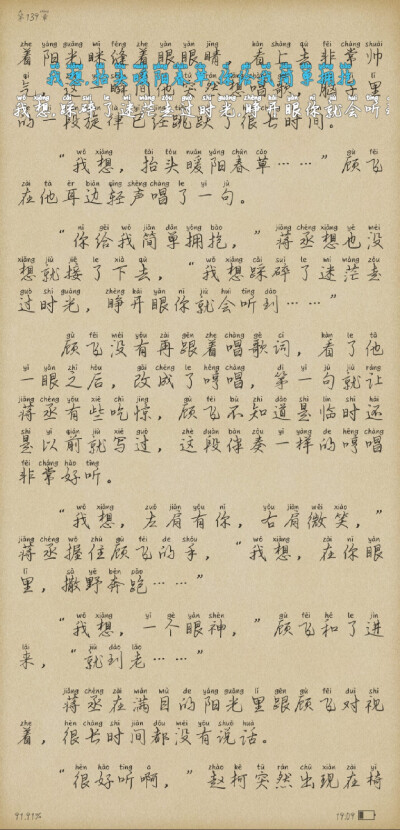 第139章
着阳光眯缝着眼眼睛，看上去非常帅
我想,抬头暖阳春草,你给我简单拥抱
我想,踩碎了迷茫走过时光,睁开眼你就会听
的一段旋律已经跳跃了很长时间。
“我想，抬头暖阳春草……”顾飞
在他耳边轻声唱了一句。
“你给我简单拥抱，”蒋丞想也没
想就接了下去，“我想踩碎了迷茫走
过时光，睁开眼你就会听到……”
顾飞没有再跟着唱歌词，看了他
一眼之后，改成了哼唱，第一句就让
蒋丞有些吃惊，顾飞不知道是临时还
是以前就写过，这段伴奏一样的哼唱
非常好听。
“我想，左肩有你，右肩微笑，”
蒋丞握住顾飞的手，“我想，在你眼
里，撒野奔跑……”
“我想，一个眼神，”顾飞和了进
来，“就到老……”
蒋丞在满目的阳光里跟顾飞对视
着，很长时间都没有说话。
“很好听啊，”赵柯突然出现在椅
91.91%
19:09